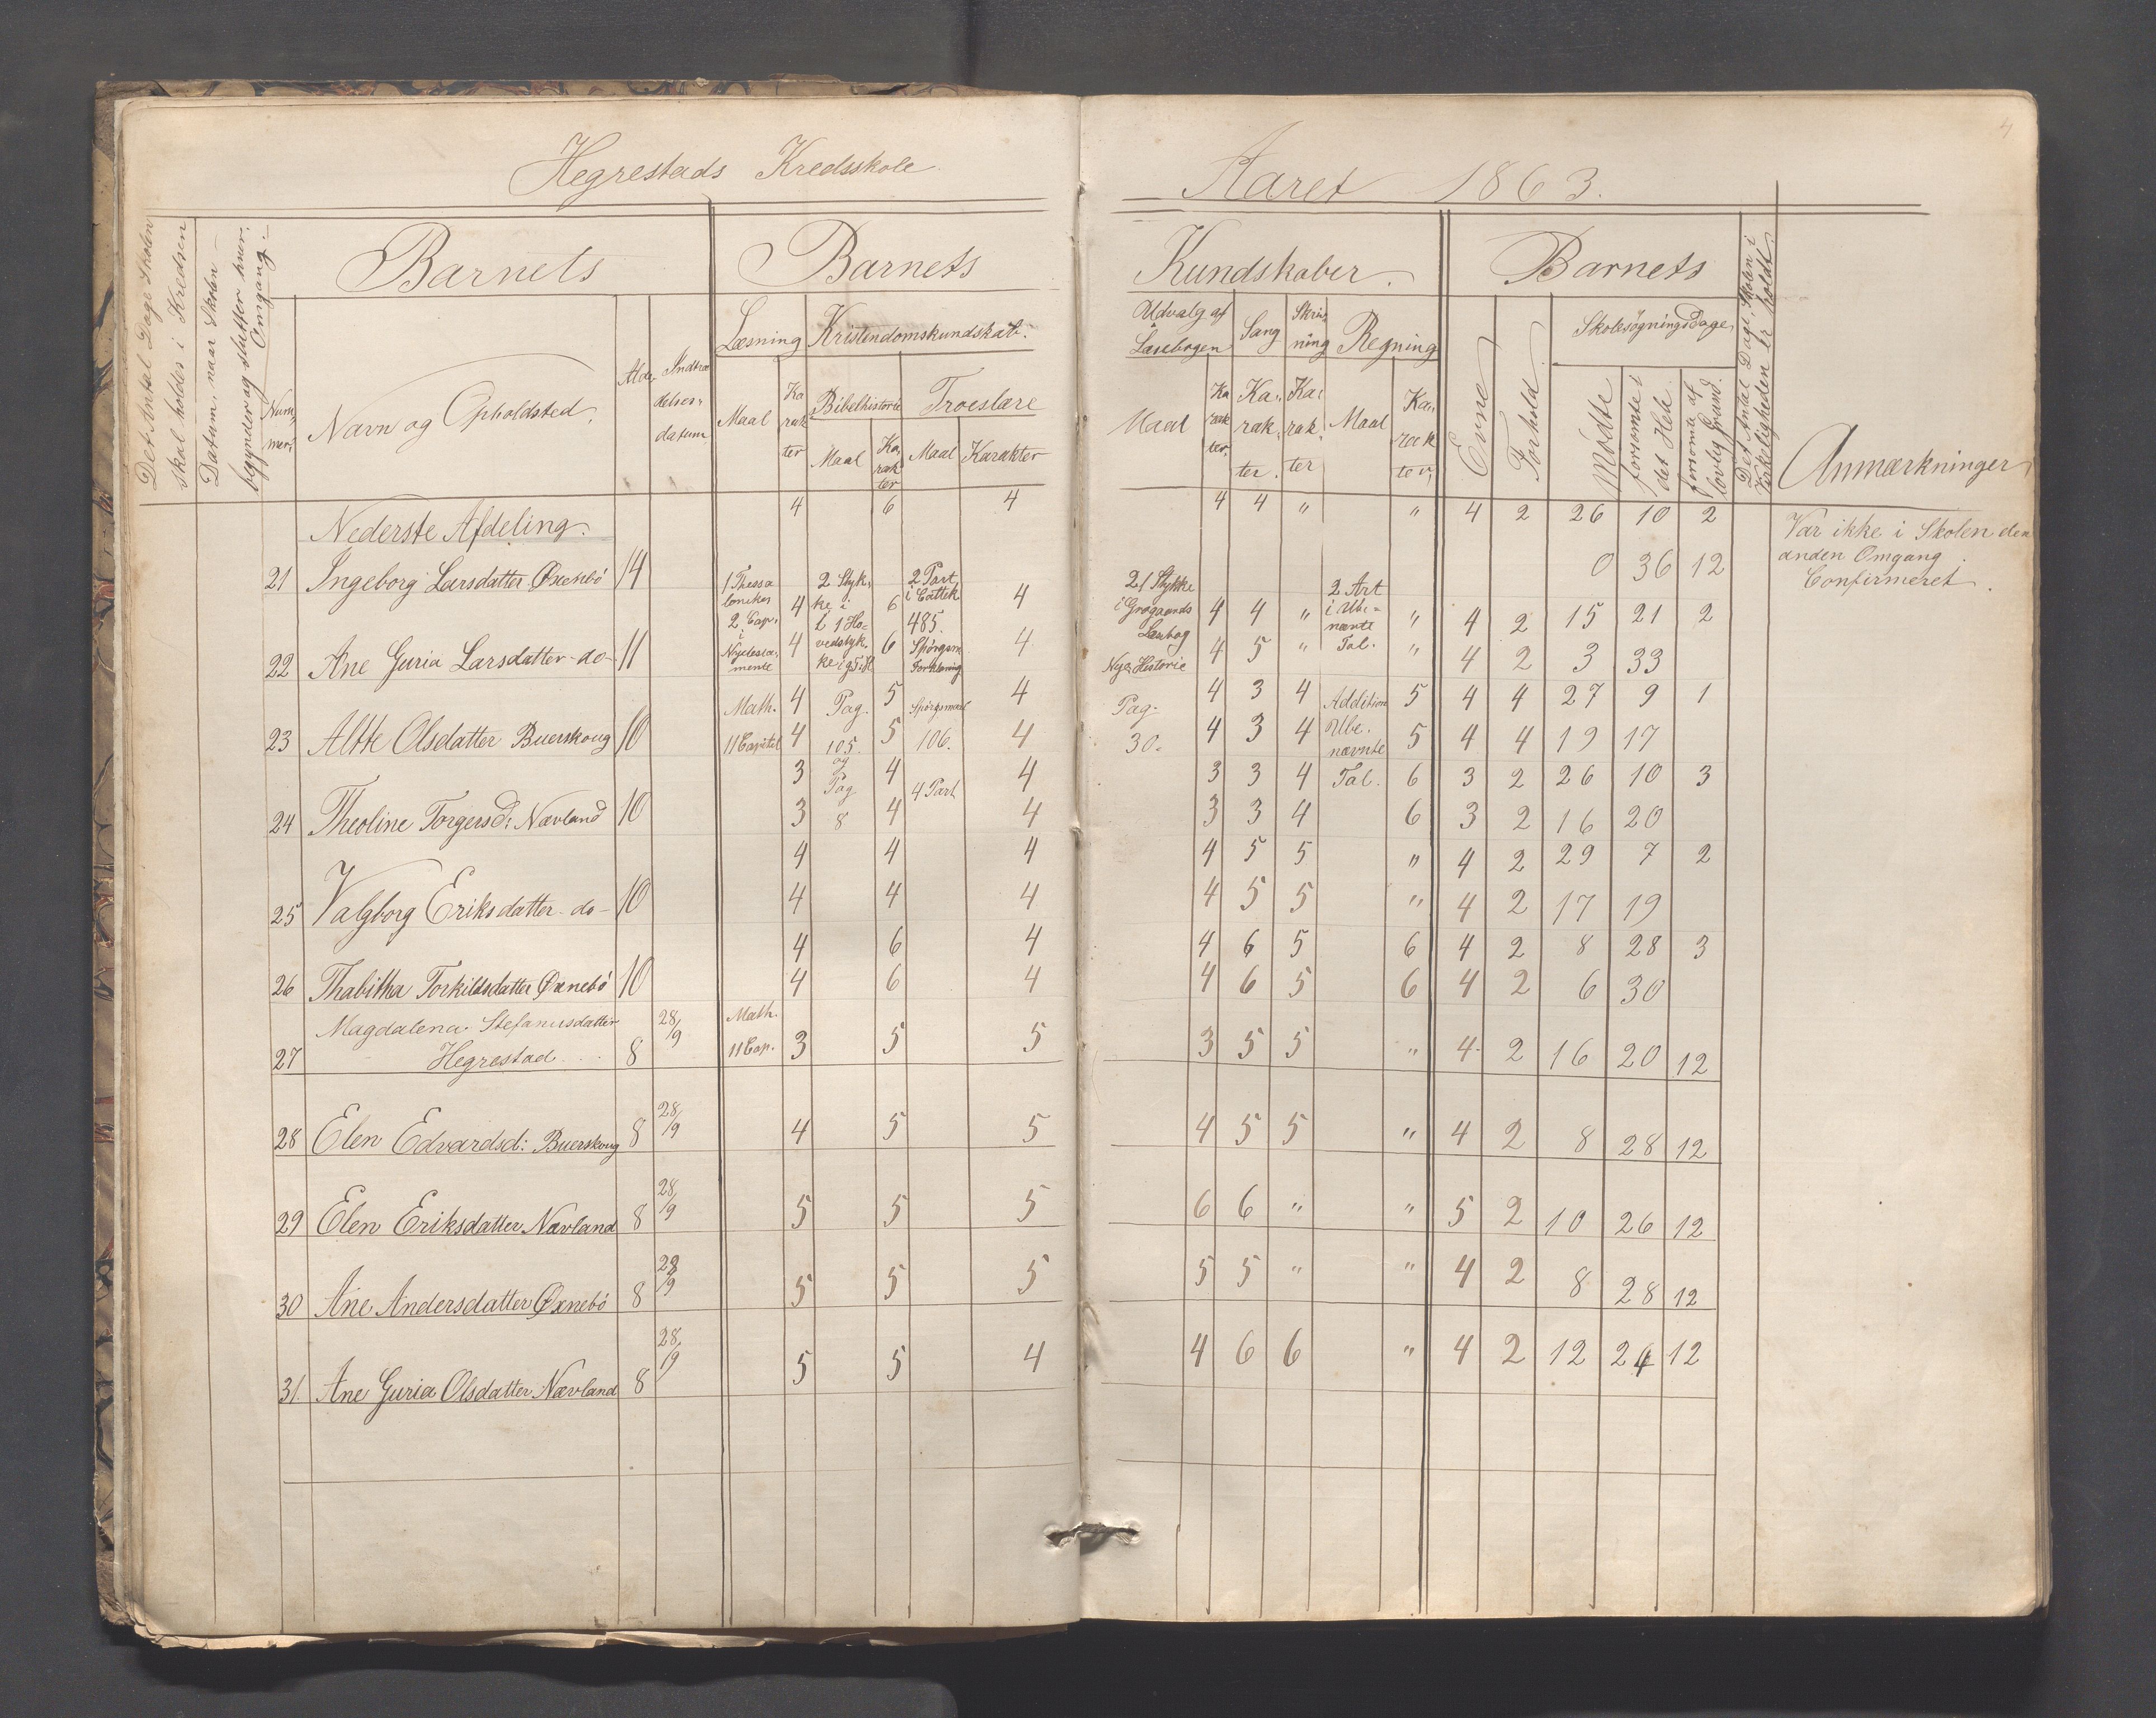 4
Hegrestads Kredsskole
Aaret 1863.
Det Antal Dage Skolen
skal holdes i Kredsen
Datum, naar Skolen
begynder og slutter hver
Omgang.
Barnets
Barnets
Kundskaber.
Barnets
Det Antal Dage, Skolen i
Virkeligheden er holdt
Num-
mer.
Navn og Opholdsted.
Alder
Indtræ
delses-
datum
Læsning
Kristendomskundskab.
Maal
Ka
rak
ter
Bibelhistorie
Troeslære
Maal
Ka
rak
ter
Maal
Karakter
Udvalg af
Læsebogen
Sang
Skriv-
ning
Regning
Maal
Ka
rak
ter.
Ka-
rak-
ter.
Ka-
rak-
ter
Maal
Ka-
rak
ter,
Evne
Forhold
Skolesøgningsdage
Mødte
forsømte i
det Hele
forsømte af
lovlig Grund.
Anmærkninger
Nederste Afdeling.
4 6 4 4 4 " " 4 2 26 10 2
Var ikke i Skolen den
anden Omgang.
Confirmeret.
21 Ingeborg Larsdatter Øxnebö 14 0 36 12
1 Thessa
lonikes
2 Cap.
i
Nyetesta-
mente
2 Styk-
ke i
t 1 Ho-
vedstyk-
ke
2 Part
i Cattek
485.
Spörgsm
Forklaring
21 Stykke
i Grøgaards
Læsbog
Nye Historie
2 Art
i Ube-
nævnte
Tal.
4 6 4 4 4 " " 4 2 15 21 2
22 Ane Guria Larsdatter - do - 11 4 6 4 4 5 " " 4 2 3 33
4 5 4 4 3 4 Addition 5 4 4 27 9 1
Math.
11 Capitel
Pag.
105.
og
Pag
8
Spörgsmaal
106.
4 Part
Pag.
30.
Ube.
nævnte
Tal.
23 Altte Olsdatter Buerskoug 10 4 5 4 4 3 4 5 4 4 19 17
3 4 4 3 3 4 6 3 2 26 10 3
24 Theoline Torgersd: Nævland 10 3 4 4 3 3 4 6 3 2 16 20
4 4 4 4 5 5 " 4 2 29 7 2
25 Valgborg Eriksdatter - do - 10 4 4 4 4 5 5 " 4 2 17 19
4 6 4 4 6 5 6 4 2 8 28 3
26 Thabitha Torkildsdatter Øxnebö 10 4 6 4 4 6 5 6 4 2 6 30
27 Magdalena Stefanusdatter
Hegrestad 8 28/9 Math.
11 Cap. 3 5 5 3 5 5 " 4 2 16 20 12
28 Elen Edvardsd: Buerskoug 8 28/9 4 5 5 4 5 5 " 4 2 8 28 12
29 Elen Eriksdatter Nævland 8 28/9 5 5 5 6 6 " " 5 2 10 26 12
30 Ane Andersdatter Øxnebö 8 28/9 5 5 5 5 5 " " 4 2 8 28 12
31. Ane Guria Olsdatter Nævland 8 28/9 5 5 4 4 6 6 " 4 2 12 24 12